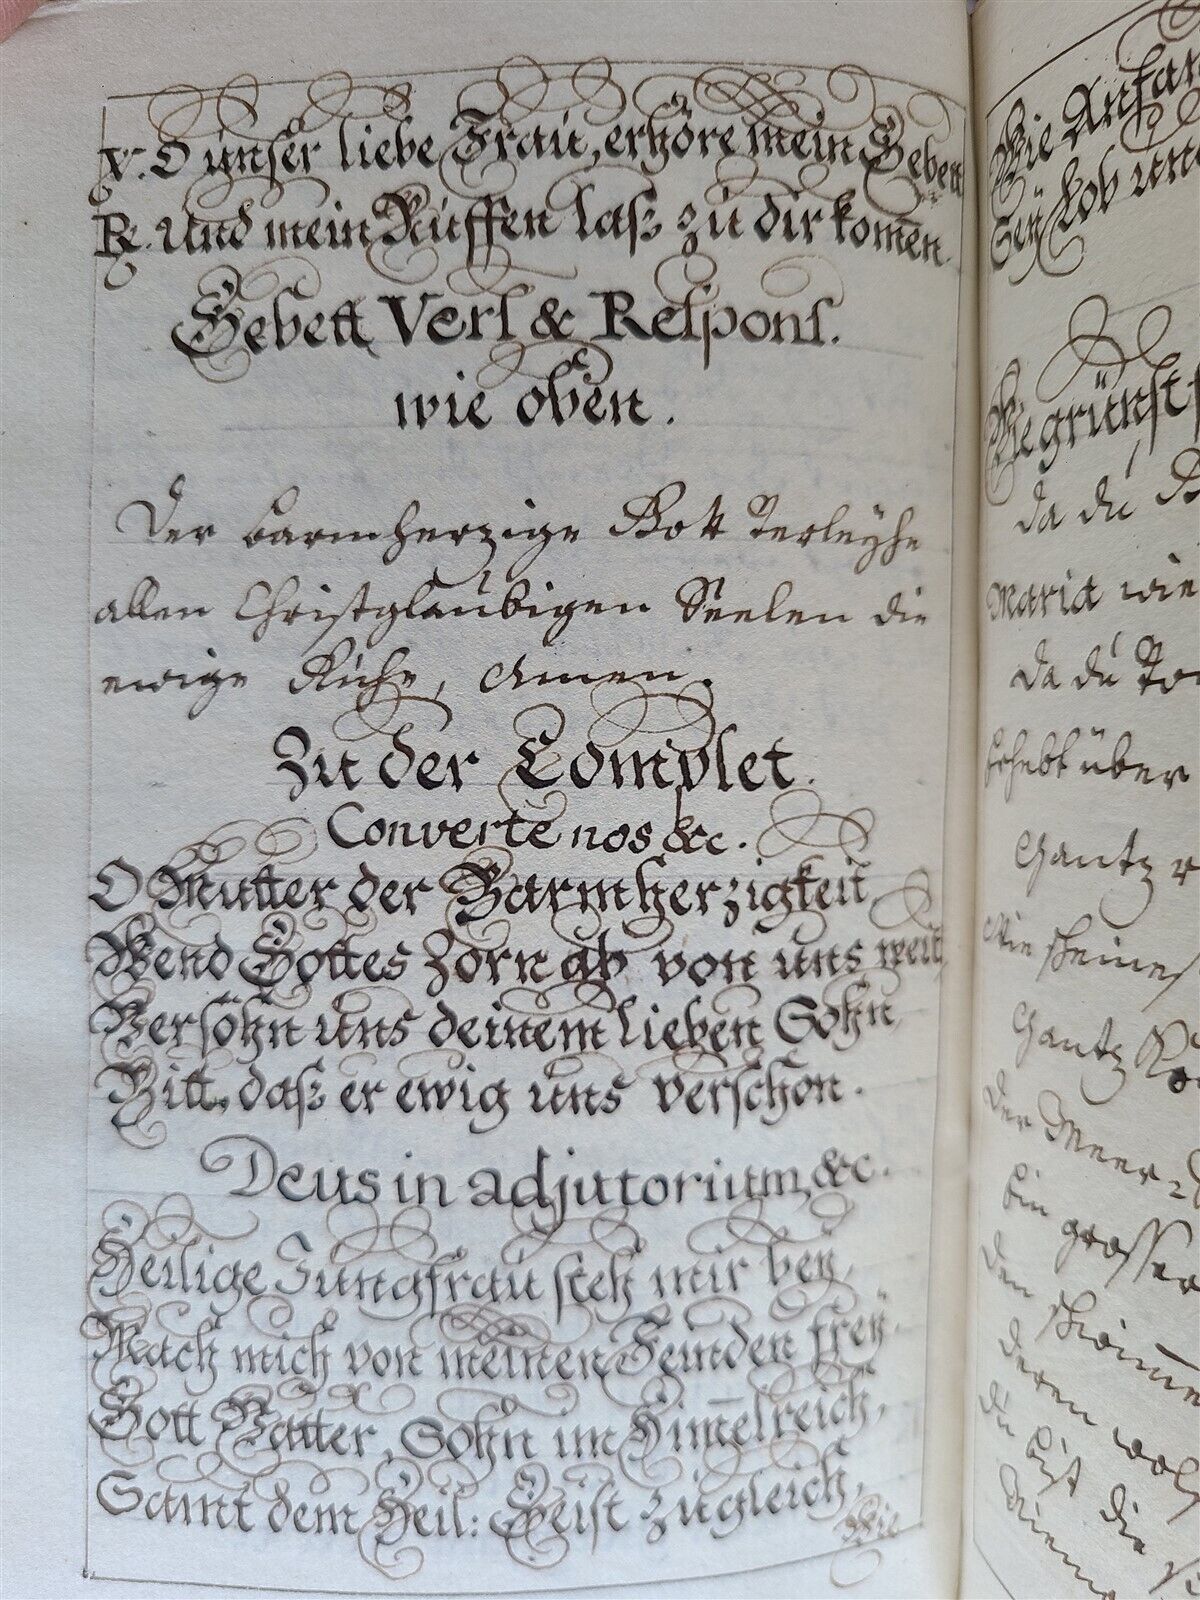 V. O unser liebe Frau, erhöre mein Gebett
R. Und mein Ruffen laß zu dir kom̄en.
Gebett, Vers & Respons.
wie oben.
Der barmherzige Gott Verleyhe
allen Christglaubigen Seelen die
ewige Ruhe, Amen.
Zu der Complet.
Converte nos &c.
O Mutter der Barmherzigkeit,
Wend Gottes Zorn ab von uns weit,
Versöhn uns deinem lieben Sohn,
Bitt, daß er ewig uns verschon.
Deus in adjutorium, &c.
Heilige Jungfrau steh mir bey,
Mach mich von meinen Feinden frey.
Gott Vatter, Sohn im Him̄elreich,
Samt dem Heil: Geist zugleich,
Wie
Wie Anfan
Sey Lob und
Gegrünst
da du
Maria wie
da du
Erhebt über
Gantz
Wie
Gantz
der Meer
Ein grosser
den
deren
du bist die